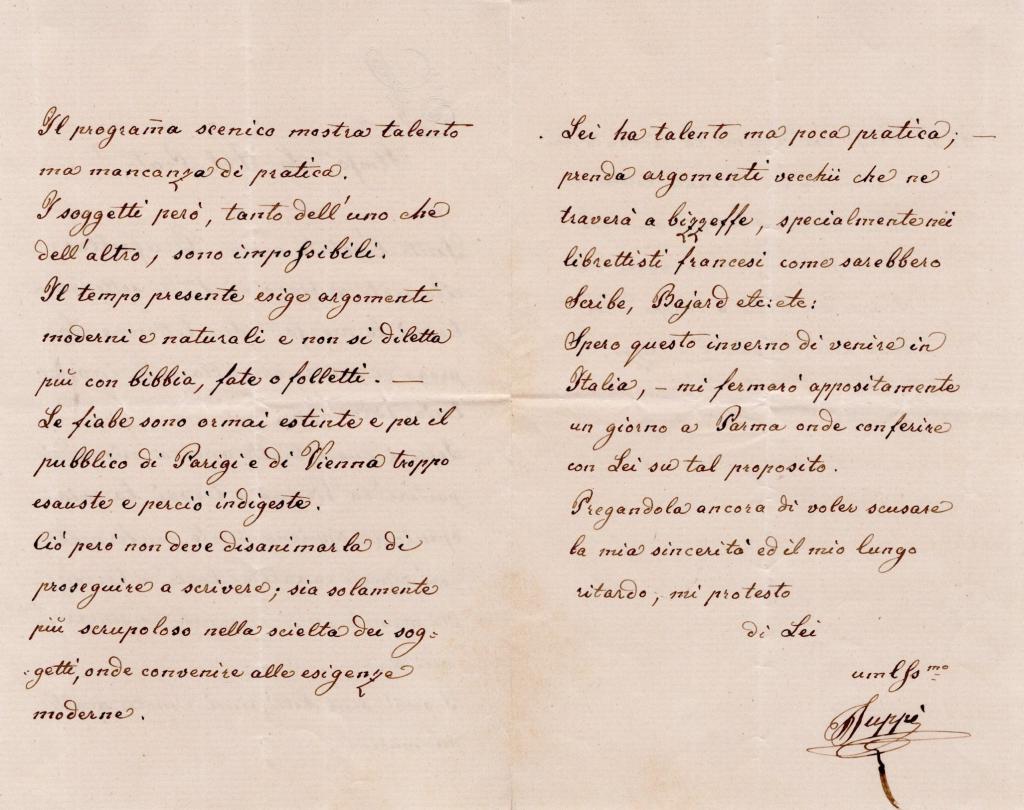 Il program̄a scenico mostra talento
ma mancanza di pratica.
I soggetti peró, tanto dell'uno che
dell'altro, sono impoſsibili.
Il tempo presente esige argomenti
moderni e naturali e non si diletta
più con bibbia, fate o folletti. —
Le fiabe sono ormai estinte e per il
pubblico di Parigi e di Vienna troppo
esauste e perció indigeste.
Ció peró non deve disanimarla di
proseguire a scrivere; sia solamente
più scrupoloso nella scielta dei sog=
=getti, onde convenire alle esigenze
moderne.
Lei ha talento ma poca pratica; —
prenda argomenti vecchii che ne
traverà a bizzeffe, specialmente nei
librettisti francesi come sarebbero
Scribe, Bajard etc: etc:
Spero questo inverno di venire in
Italia, – mi fermaró appositamente
un giorno a Parma onde conferire
con Lei su tal proposito.
Pregandola ancora di voler scusare
la mia sincerità ed il mio lungo
ritardo, mi protesto
di Lei
umlſsmo
Suppè